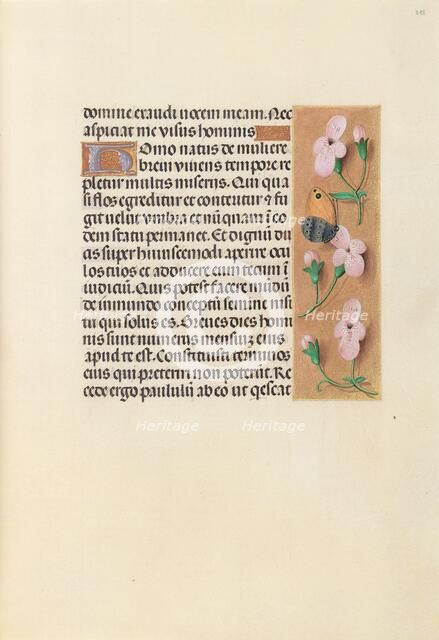 domine exaudi vocem meam. Nec
aspiciat me visus hominis
Homo natus de muliere
brevi vivens tempore re
pletur multis miseriis. Qui qua
si flos egreditur et conteritur ⁊ fu
git velut umbra et nūquam ī eo
dem statu permanet. Et dignū du
cis super huiuscemodi aperire ocu
los tuos et adducere eum tecum ī
iudiciū. Quis potest facere mūdū
de inmundo conceptū semine nisi
tu qui solus es. Breves dies homi
nis sunt numerus mensiuȝ eius
apud te est. Constituisti terminos
eius qui preteriri non poterūt. Re
cede ergo paululū ab eo ut qescat
Heritage Heritage
Heritage Heritage
Heritage Heritage